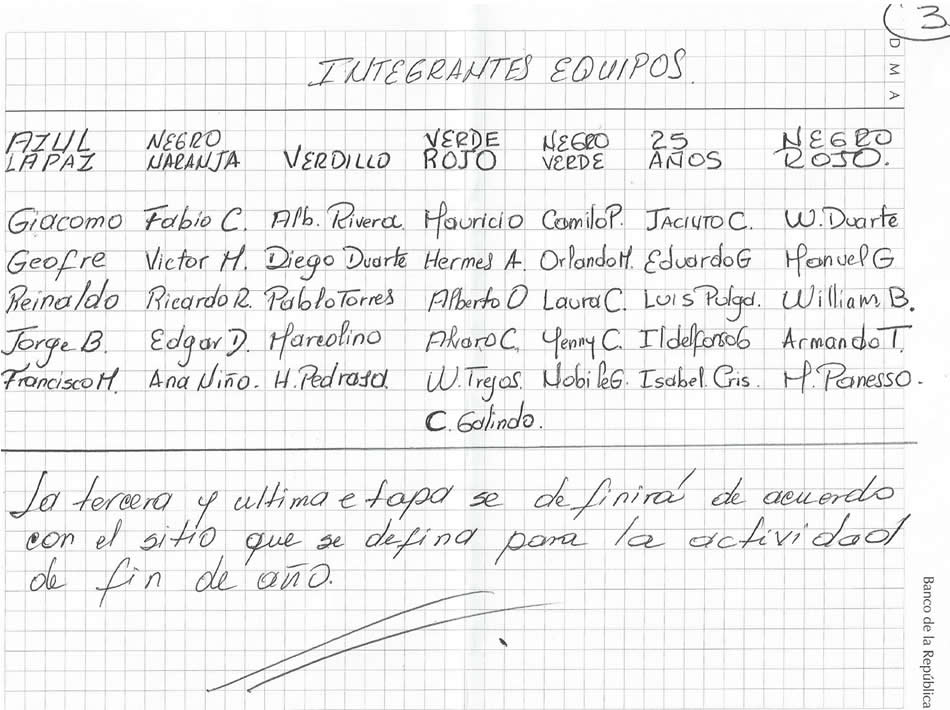 3
D M A
INTEGRANTES EQUIPOS.
AZUL NEGRO VERDE NEGRO 25 NEGRO
LA PAZ NARANJA VERDILLO ROJO VERDE AÑOS ROJO.
Giacomo Fabio C. Alb. Rivera. Mauricio Camilo P. JACINTO C. W. Duarte
Geofre Victor M. Diego Duarte Hermes A. Orlando M. Eduardo G Manuel G
Reinaldo Ricardo R. Pablo Torres Alberto O Laura C. LUIS Pulga. William B.
Jorge B. Edgar D. Marcolino Alvaro C. Yenny C. Ildelfonso G Armando T.
Francisco M. Ana Niño. H. Pedraza. W. Trejos. Nobile G. Isabel. Cris. M. Panesso.
C. Galindo.
La tercera y ultima etapa se definirá de acuerdo
con el sitio que se defina para la actividad
de fin de año.
Banco de la República